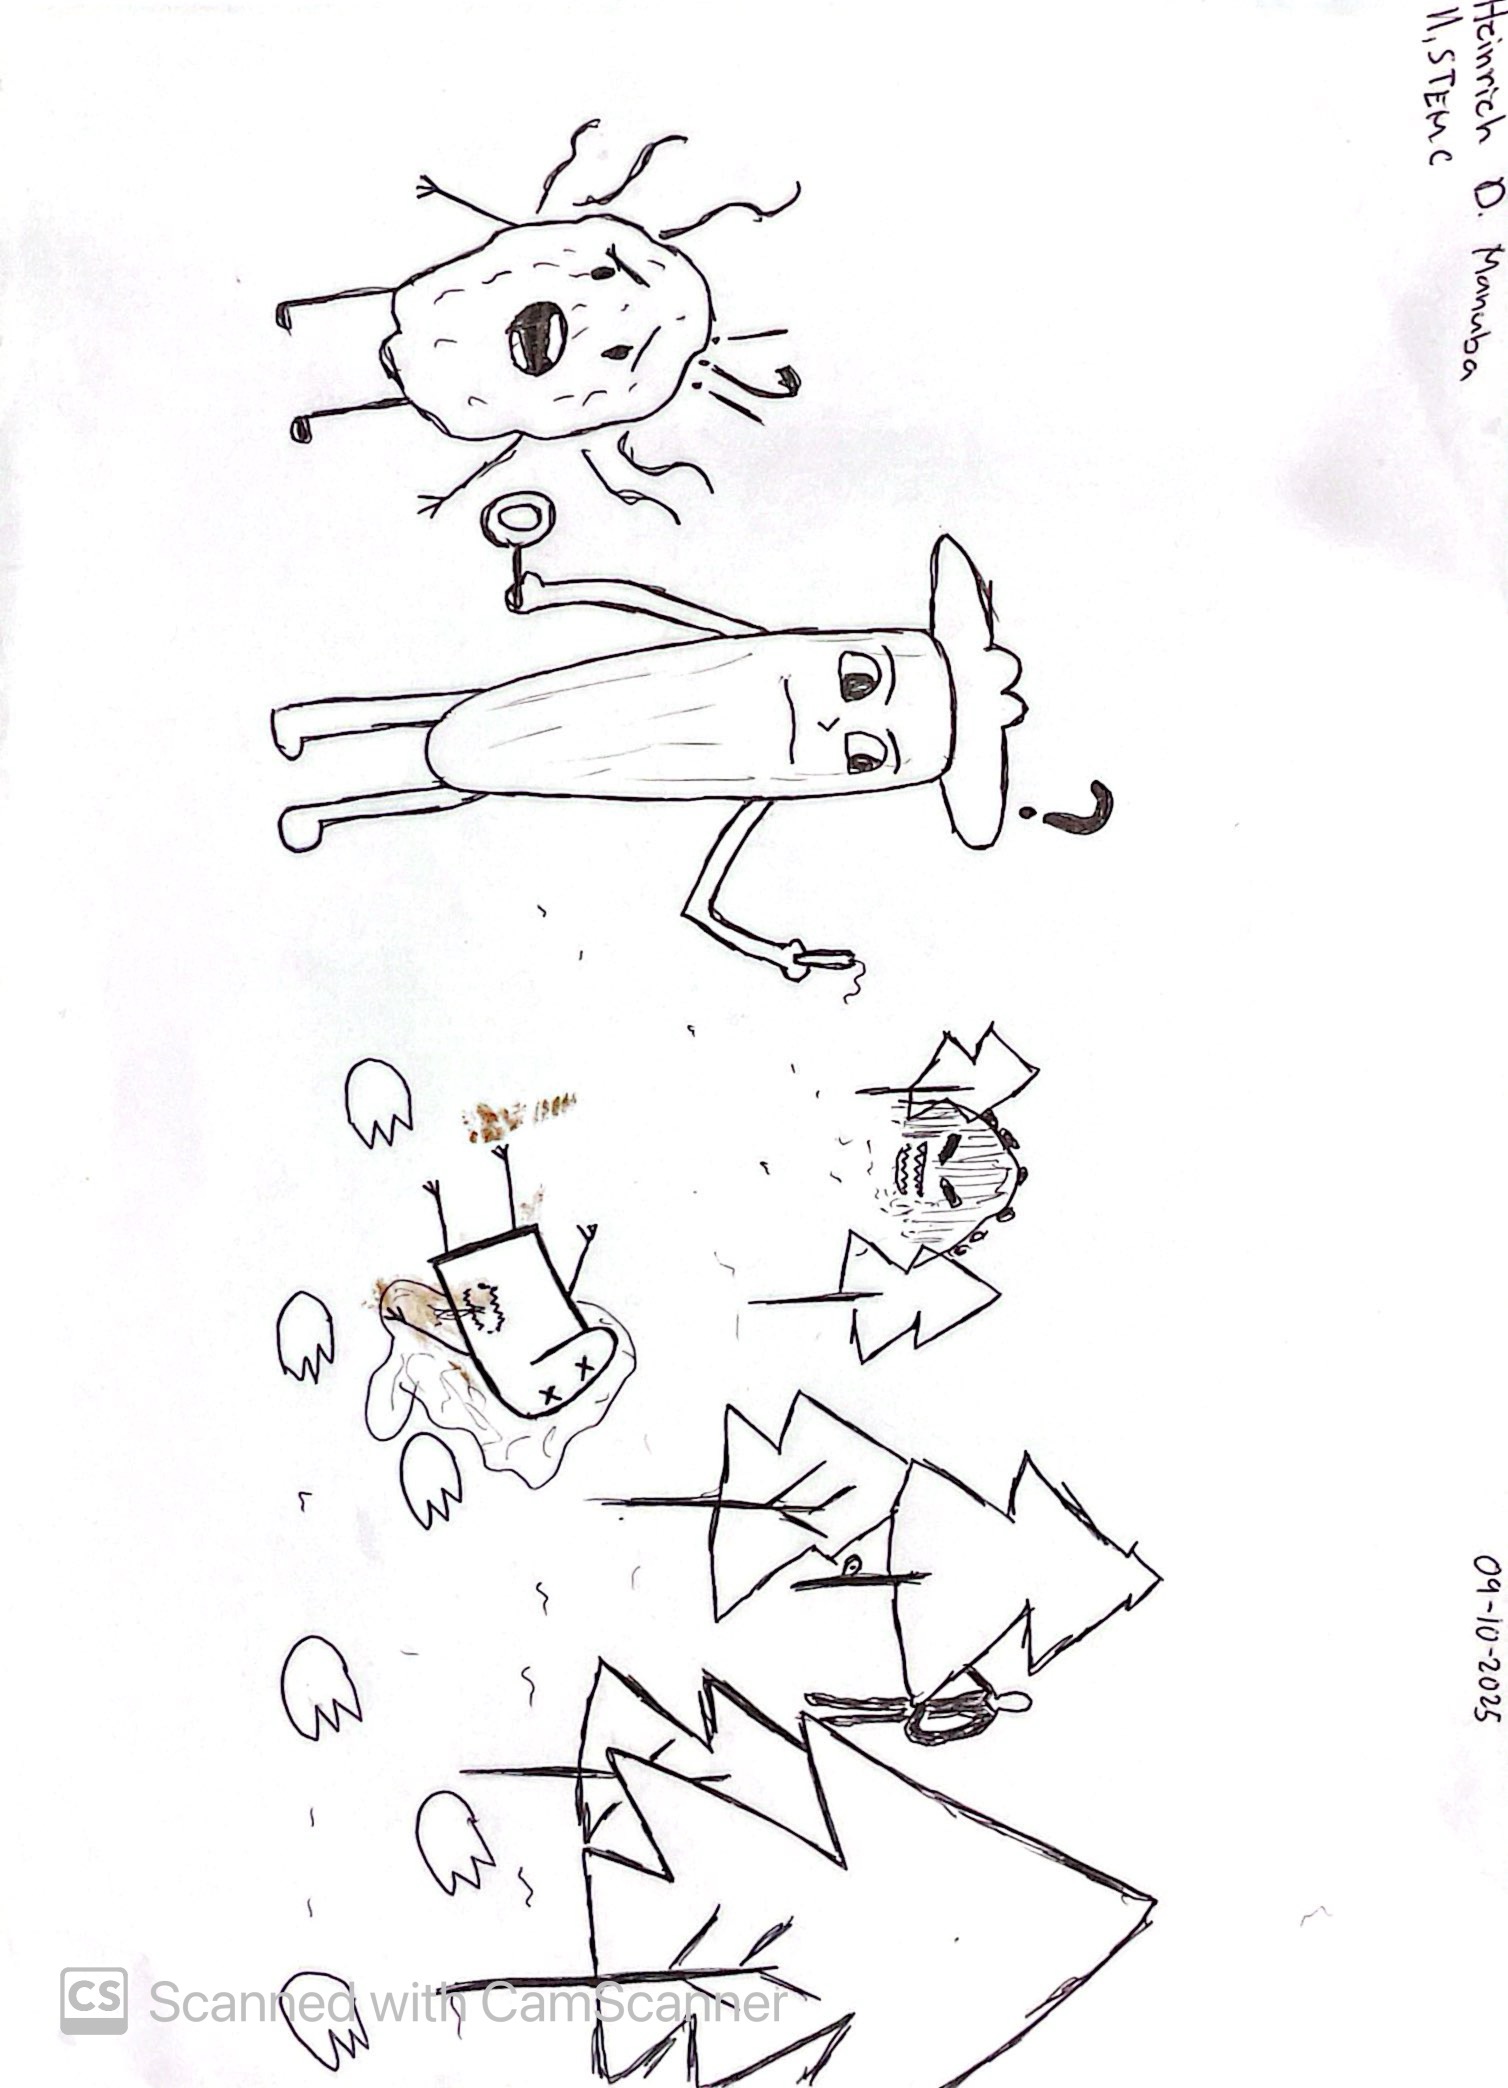 Heinrich D. Manuba
11, STEM C
09-10-2025
?
CS Scanned with CamScanner